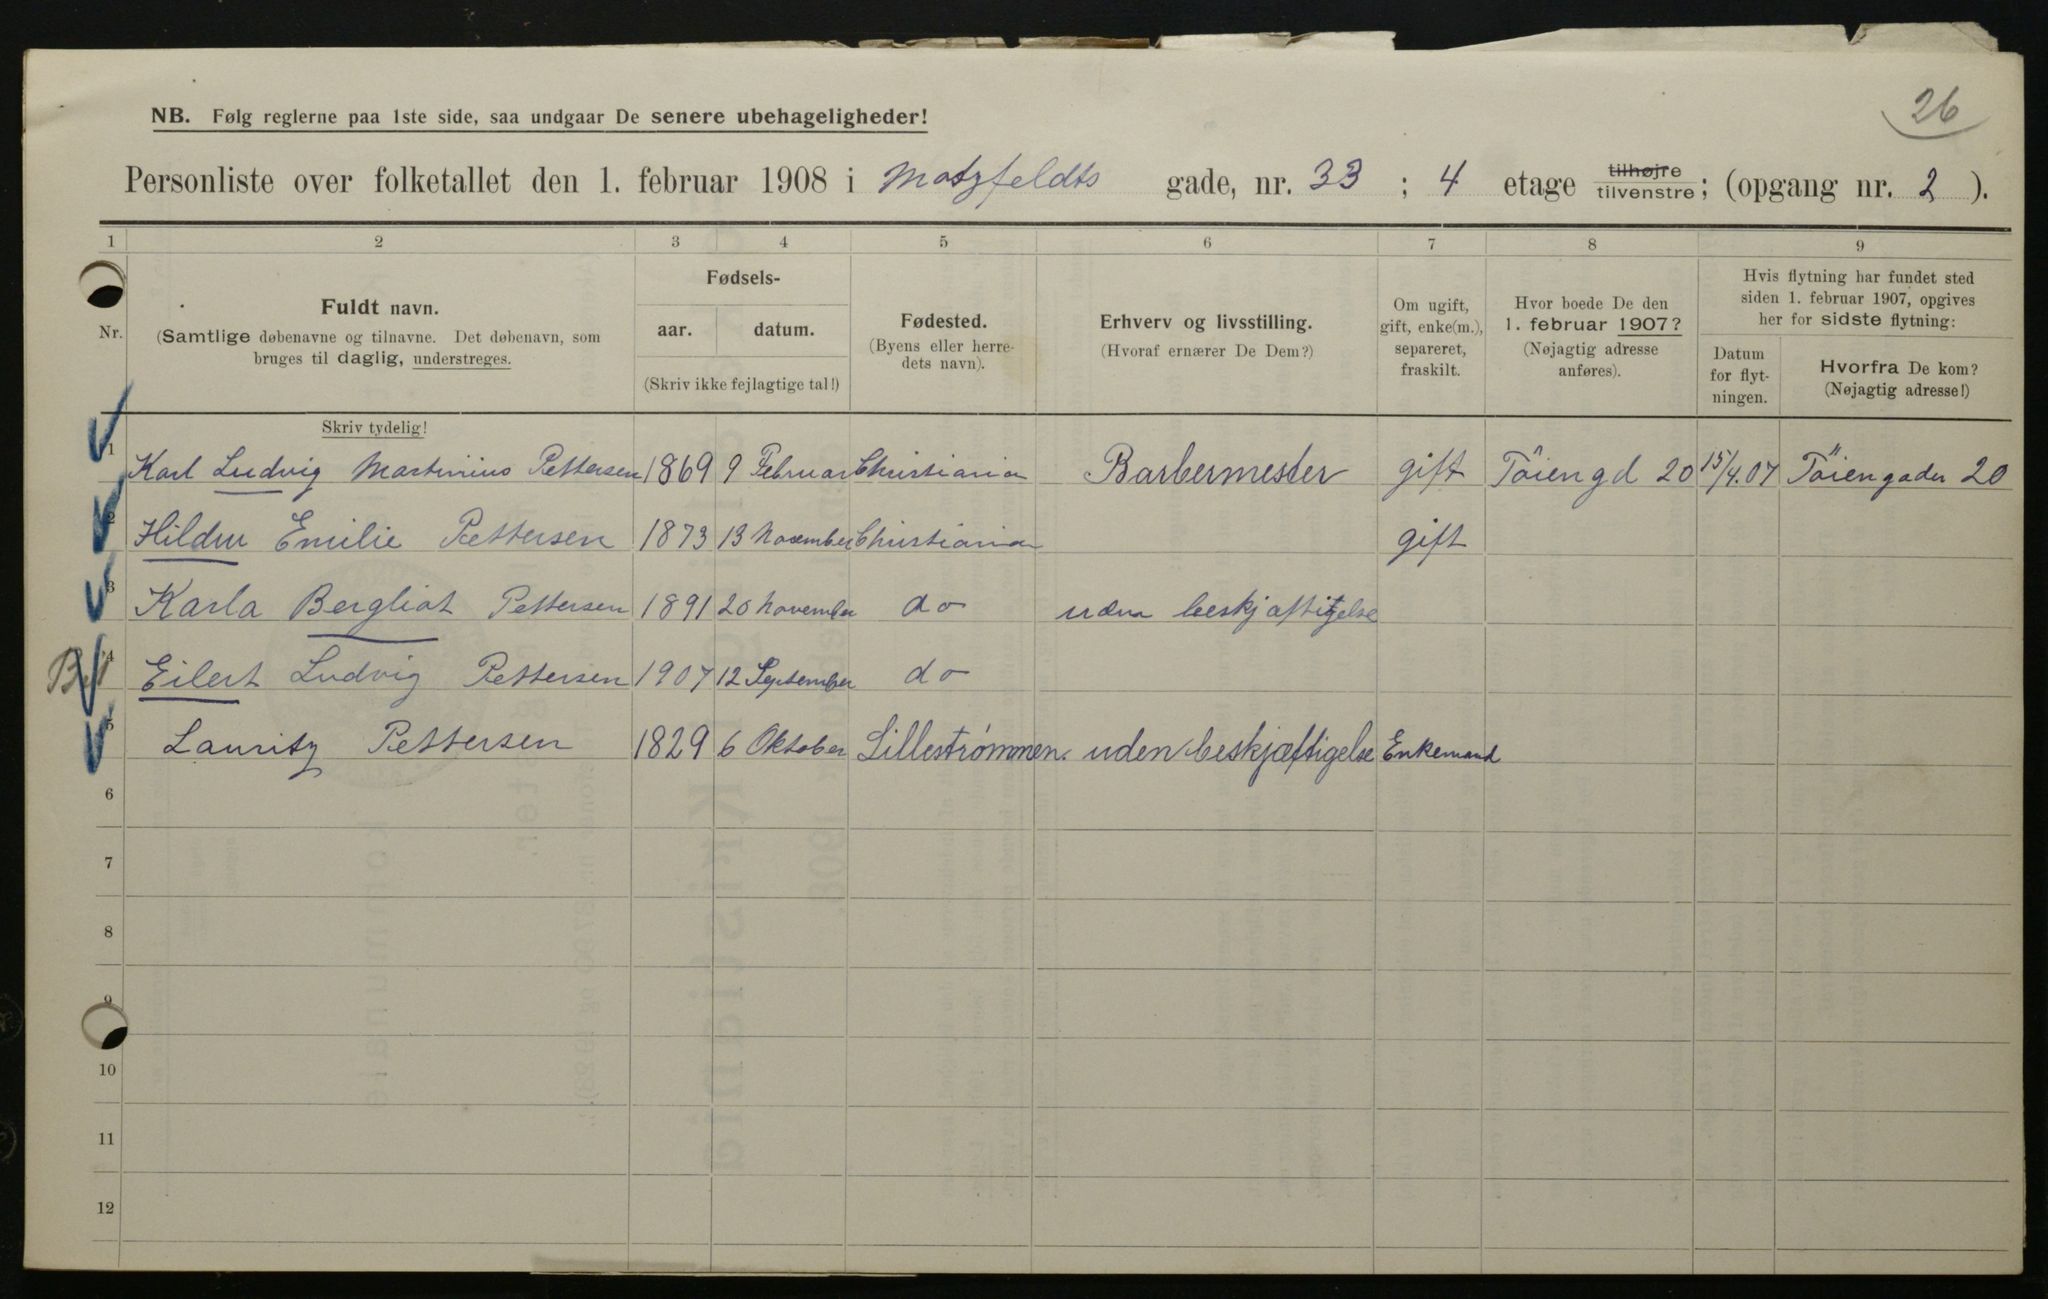 26
NB. Følg reglerne paa 1ste side, saa undgaar De senere ubehageligheder!
Personliste over folketallet den 1. februar 1908 i Motzfeldts gade, nr. 33 ; 4 etage tilhøjre tilvenstre; (opgang nr. 2 ).
1 2 3 4 5 6 7 8 9
Nr.
Fuldt navn.
(Samtlige døbenavne og tilnavne. Det døbenavn, som
bruges til daglig, understreges.
Skriv tydelig!
Fødsels-
aar. datum.
(Skriv ikke fejlagtige tal!)
Fødested.
(Byens eller herre-
dets navn).
Erhverv og livsstilling.
(Hvoraf ernærer De Dem?)
Om ugift,
gift, enke(m.),
separeret,
fraskilt.
Hvor boede De den
1. februar 1907?
(Nøjagtig adresse
anføres).
Hvis flytning har fundet sted
siden 1. februar 1907, opgives
her for sidste flytning:
Datum
for flyt-
ningen.
Hvorfra De kom?
(Nøjagtig adresse!)
1 Karl Ludvig Martinius Pettersen 1869 9 Februar Christiania Barbermester gift Töiengd 20 15/4.07 Töiengaden 20
2 Hilda Emilie Pettersen 1873 13 November Christiania gift
3 Karla Bergliot Pettersen 1891 20 November do uden beskjæftigelse
4 Eilert Ludvig Pettersen 1907 12 September do
5 Lauritz Pettersen 1829 6 Oktober Lillestrømmen. uden beskjæftigelse Enkemand
6
7
8
9
10
11
12